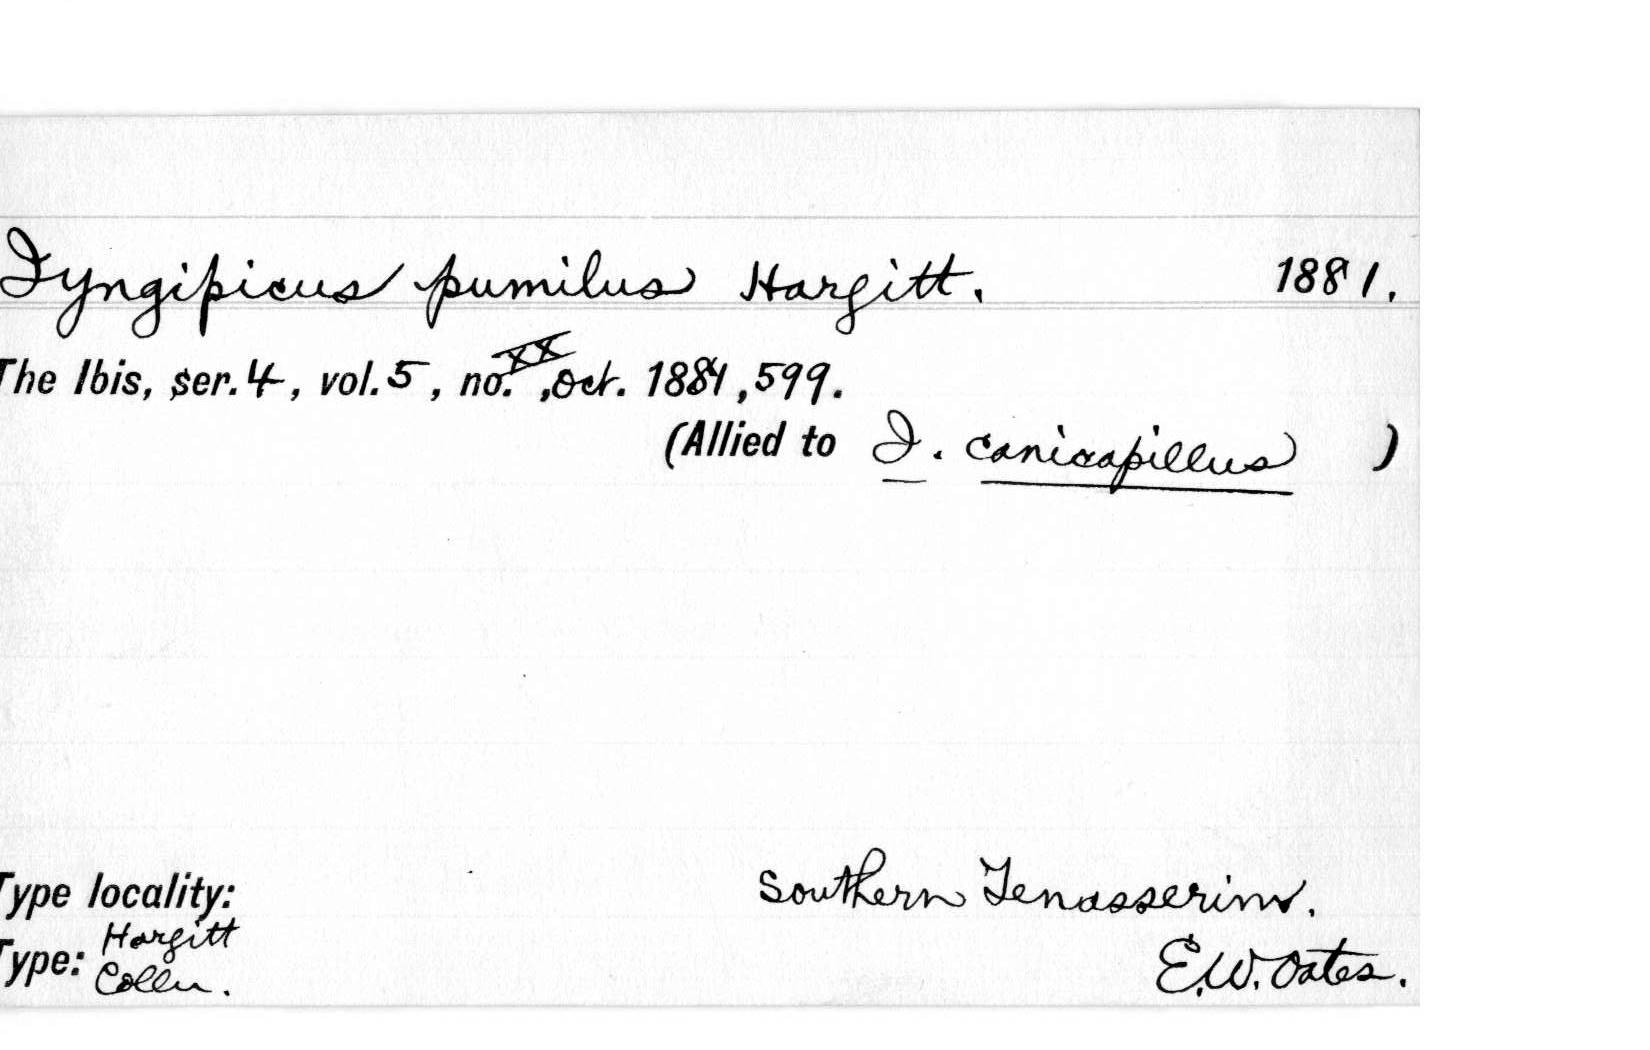 Iyngipicus pumilus Hargitt. 1881.
The Ibis, ser. 4, vol. 5, no. XX, Oct. 1881, 599.
(Allied to I. canicapillus )
Type locality: Southern Tenasserim.
Type: Hargitt Colln. E.W. Oates.